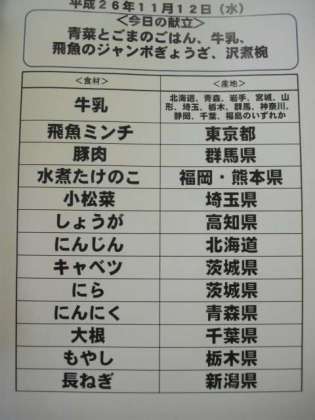 平成２６年１１月１２日（水）
＜今日の献立＞
青菜とごまのごはん、牛乳、
飛魚のジャンボぎょうざ、沢煮椀
＜食材＞ ＜産地＞
牛乳 北海道、青森、岩手、宮城、山
形、埼玉、栃木、群馬、神奈川、
静岡、千葉、福島のいずれか
飛魚ミンチ 東京都
豚肉 群馬県
水煮たけのこ 福岡・熊本県
小松菜 埼玉県
しょうが 高知県
にんじん 北海道
キャベツ 茨城県
にら 茨城県
にんにく 青森県
大根 千葉県
もやし 栃木県
長ねぎ 新潟県